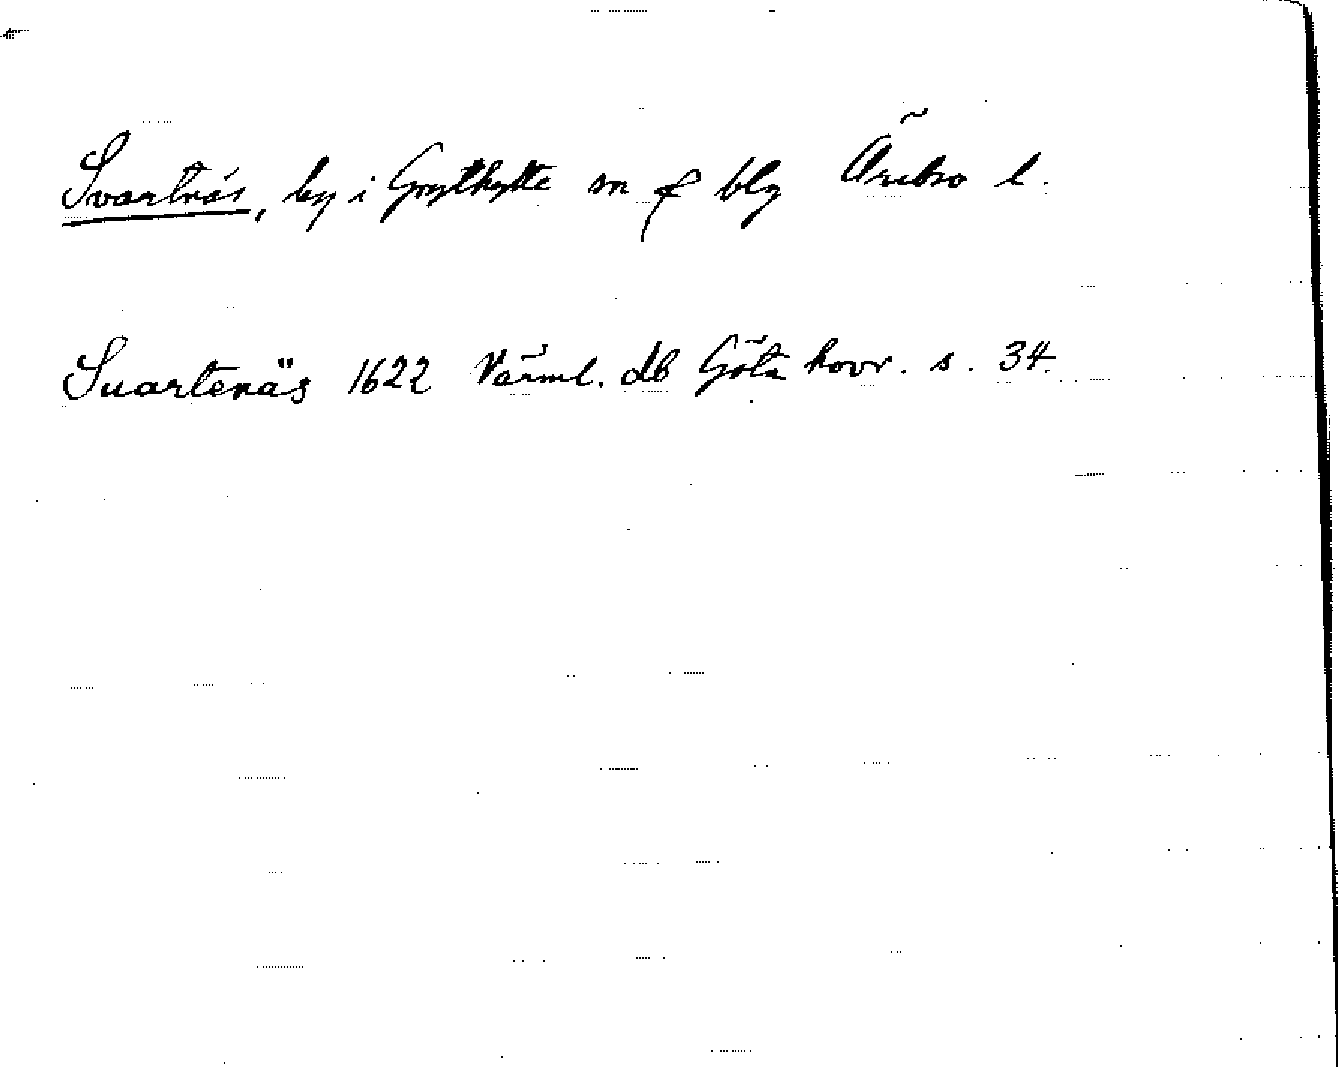 Svartnäs, by i Grythytte sn o blg Örebro l.
Suartenäs 1622 Värml. db Göta hovr. s. 34.